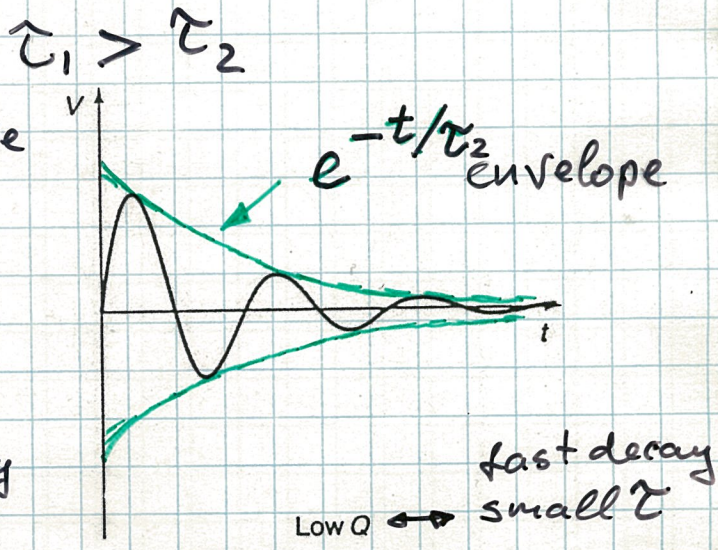 τ₁ > τ₂
V
e
e^{-t/τ₂} envelope
t
y
fast decay
Low Q ↔ small τ